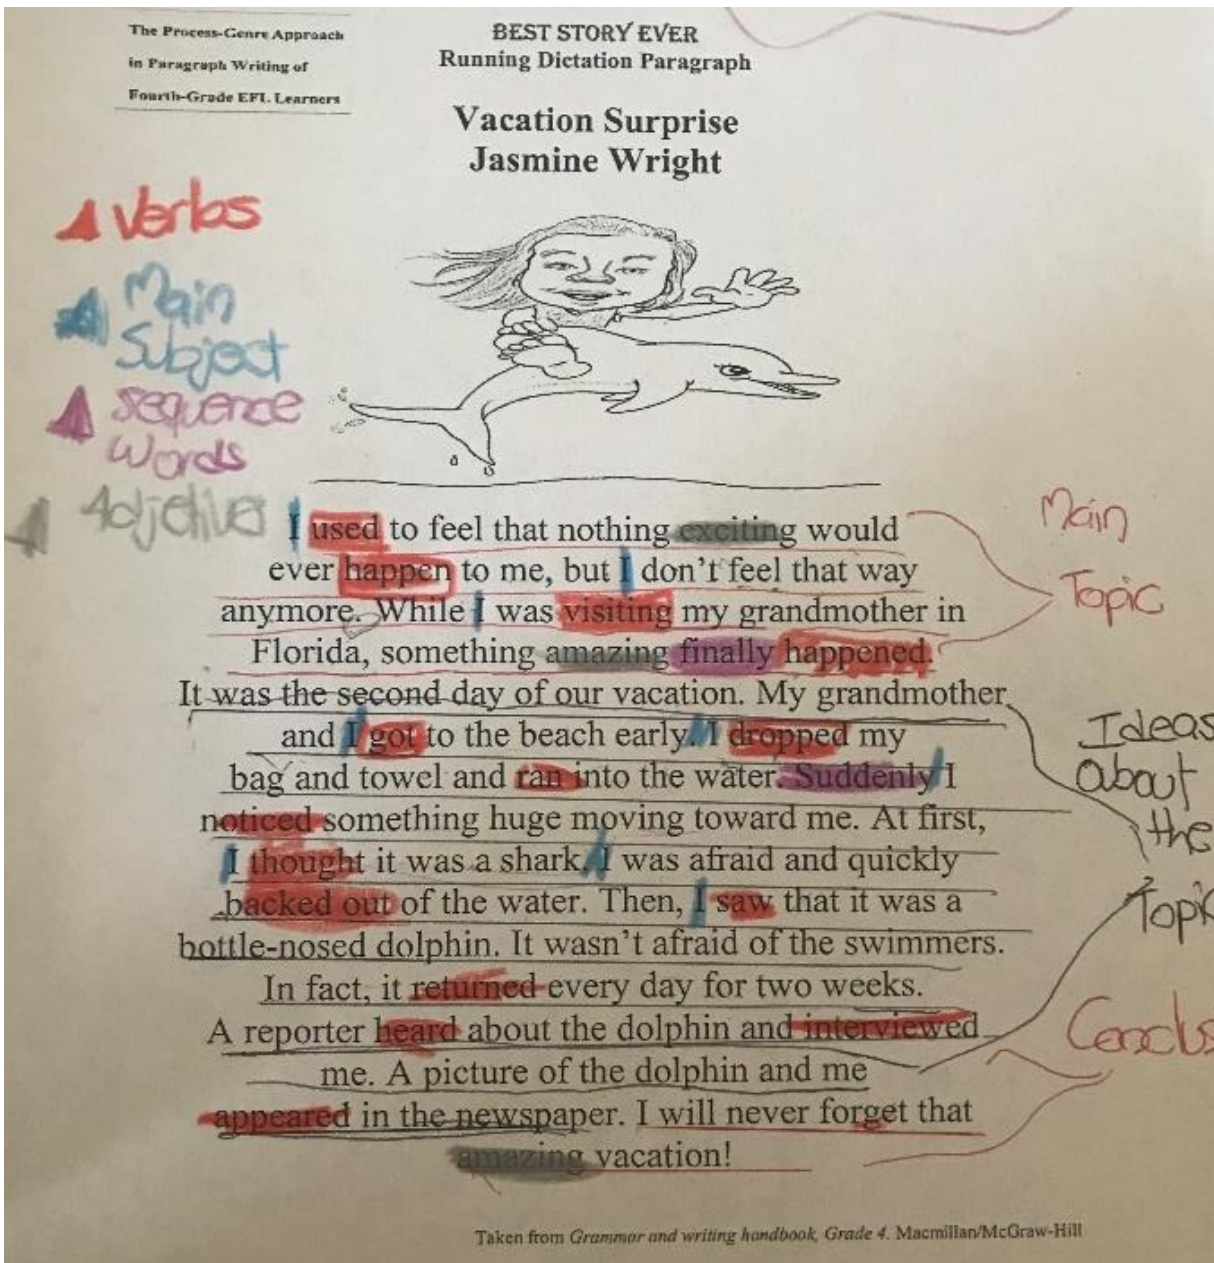 The Process-Genre Approach
in Paragraph Writing of
Fourth-Grade EFL Learners
BEST STORY EVER
Running Dictation Paragraph
Vacation Surprise
Jasmine Wright
Verbs
Main
Subject
Sequence
Words
Adjetives
I used to feel that nothing exciting would
ever happen to me, but I don't feel that way
anymore. While I was visiting my grandmother in
Florida, something amazing finally happened.
It was the second day of our vacation. My grandmother
and I got to the beach early. I dropped my
bag and towel and ran into the water. Suddenly I
noticed something huge moving toward me. At first,
I thought it was a shark. I was afraid and quickly
backed out of the water. Then, I saw that it was a
bottle-nosed dolphin. It wasn't afraid of the swimmers.
In fact, it returned every day for two weeks.
A reporter heard about the dolphin and interviewed
me. A picture of the dolphin and me
appeared in the newspaper. I will never forget that
amazing vacation!
Main
Topic
Ideas
about
the
Topic
Taken from Grammar and writing handbook, Grade 4. Macmillan/McGraw-Hill